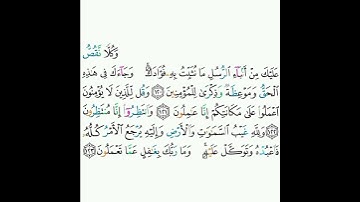 وَكُلًّا نَّقُصُّ
عَلَيْكَ مِنْ أَنۢبَآءِ ٱلرُّسُلِ مَا نُثَبِّتُ بِهِۦ فُؤَادَكَۚ وَجَآءَكَ فِى هَٰذِهِ
ٱلْحَقُّ وَمَوْعِظَةٌ وَذِكْرَىٰ لِلْمُؤْمِنِينَ ١٢٠ وَقُل لِّلَّذِينَ لَا يُؤْمِنُونَ
ٱعْمَلُوا۟ عَلَىٰ مَكَانَتِكُمْ إِنَّا عَٰمِلُونَ ١٢١ وَٱنتَظِرُوٓا۟ إِنَّا مُنتَظِرُونَ
١٢٢ وَلِلَّهِ غَيْبُ ٱلسَّمَٰوَٰتِ وَٱلْأَرْضِ وَإِلَيْهِ يُرْجَعُ ٱلْأَمْرُ كُلُّهُۥ
فَٱعْبُدْهُ وَتَوَكَّلْ عَلَيْهِۚ وَمَا رَبُّكَ بِغَٰفِلٍ عَمَّا تَعْمَلُونَ ١٢٣